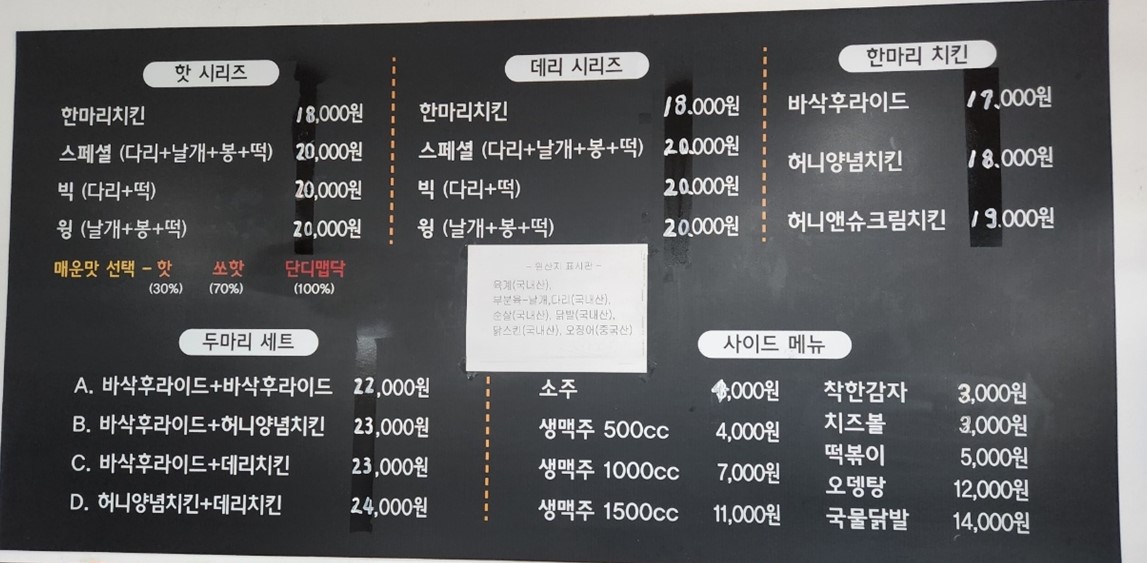 핫 시리즈
한마리치킨 18,000원
스페셜 (다리+날개+봉+떡) 20,000원
빅 (다리+떡) 20,000원
윙 (날개+봉+떡) 20,000원
매운맛 선택 - 핫 쏘핫 단디맵닥
(30%) (70%) (100%)
데리 시리즈
한마리치킨 18.000원
스페셜 (다리+날개+봉+떡) 20.000원
빅 (다리+떡) 20.000원
윙 (날개+봉+떡) 20.000원
한마리 치킨
바삭후라이드 17.000원
허니양념치킨 18.000원
허니앤슈크림치킨 19.000원
- 원산지 표시판 -
육계(국내산),
부분육-날개,다리(국내산),
순살(국내산), 닭발(국내산),
닭스킨(국내산), 오징어(중국산)
두마리 세트
A. 바삭후라이드+바삭후라이드 22,000원
B. 바삭후라이드+허니양념치킨 23,000원
C. 바삭후라이드+데리치킨 23,000원
D. 허니양념치킨+데리치킨 24,000원
사이드 메뉴
소주
생맥주 500cc 4,000원
생맥주 1000cc 7,000원
생맥주 1500cc 11,000원
착한감자 3,000원
치즈볼 3,000원
떡볶이 5,000원
오뎅탕 12,000원
국물닭발 14,000원